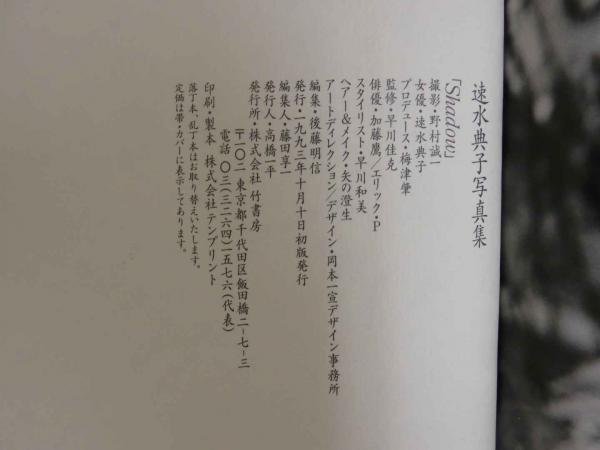 速水典子写真集
「Shadow」
撮影・野村誠一
女優・速水典子
プロデュース・梅津肇
監修・早川佳克
俳優・加藤鷹／エリック・P
スタイリスト・早川和美
ヘアー&メイク・矢の澄生
アートディレクション／デザイン・岡本一宣デザイン事務所
編集・後藤明信
発行・一九九三年十月十日初版発行
編集人・藤田享一
発行人・高橋一平
発行所・株式会社 竹書房
〒一〇二 東京都千代田区飯田橋二-七-三
電話 〇三(三二六四)一五七六(代表)
印刷・製本 株式会社テンプリント
落丁本、乱丁本はお取り替えいたします。
定価は帯・カバーに表示してあります。